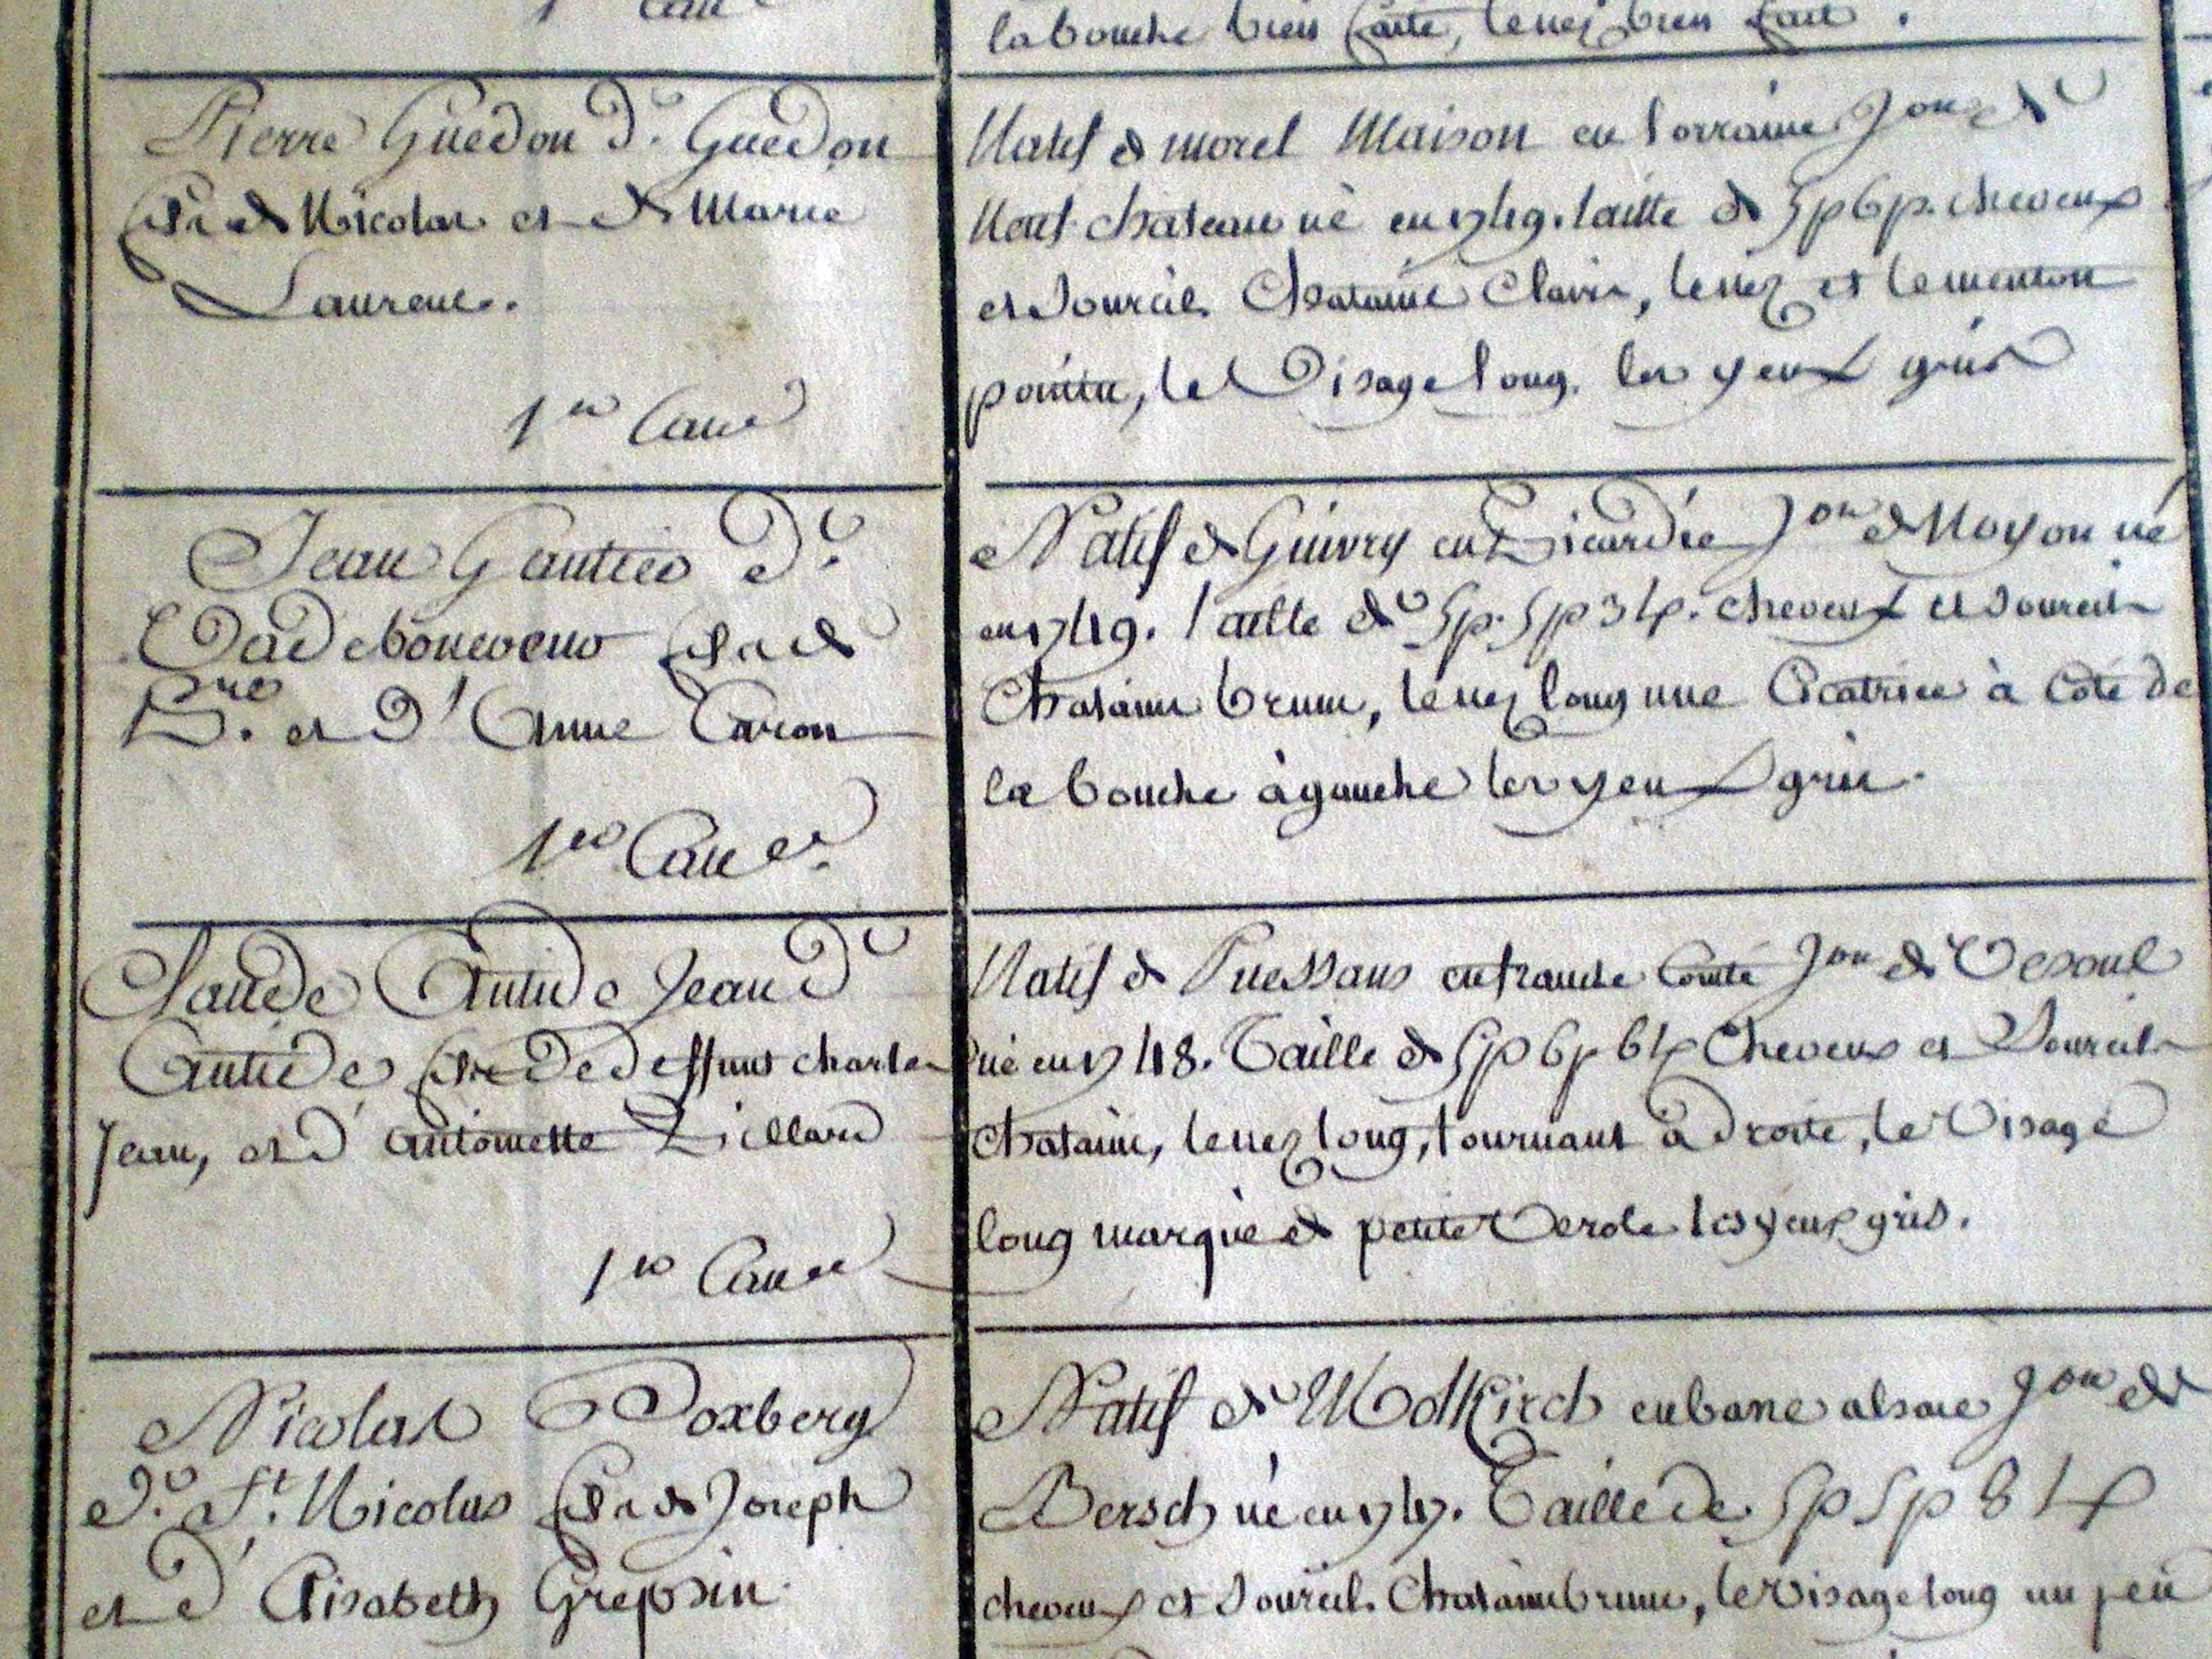 la bouche bien faite, le nez bien fait.
Pierre Guedon d.t Guedon
fils de Nicolas et de Marie
Laurent.
1er
Natif de morel Maison en lorraine Jon de
Neuf chateau né en 1749. taille de 5p 6p. cheveux
et Sourcils Chataine Clairs, le nez et le menton
pointu, le Visage long. les yeux gris
Jean Gautier d.t
fils de
Pre. et d'Anne Caron
1er
Natif de Guivry en Picardie Jon de Noyon né
en 1749. taille de 5p. 5p 3l. cheveux et Sourcils
Chatain brun, le nez long une Cicatrice à Coté de
la bouche à gauche les yeux gris.
Claude Antide Jean dt
Antide fils de deffunt charles
Jean, et d'antoinette Billard
1er
Natif de Puessans en franche Comté Jon de Vesoul
né en 1748. Taille de 5p 6p 6l Cheveux et Sourcils
chatain, le nez long, tournant à droite, le Visage
long marqué de petite Verole les yeux gris.
Nicolas Foxberg
d.t St. Nicolas fils de Joseph
et d'Elisabeth Grepsin.
Natif de Modkirch en basse alsace Jon de
Bersch né en 1747. Taille de 5p 5p 8l
cheveux et Sourcils Chatain brun, le Visage long un peu